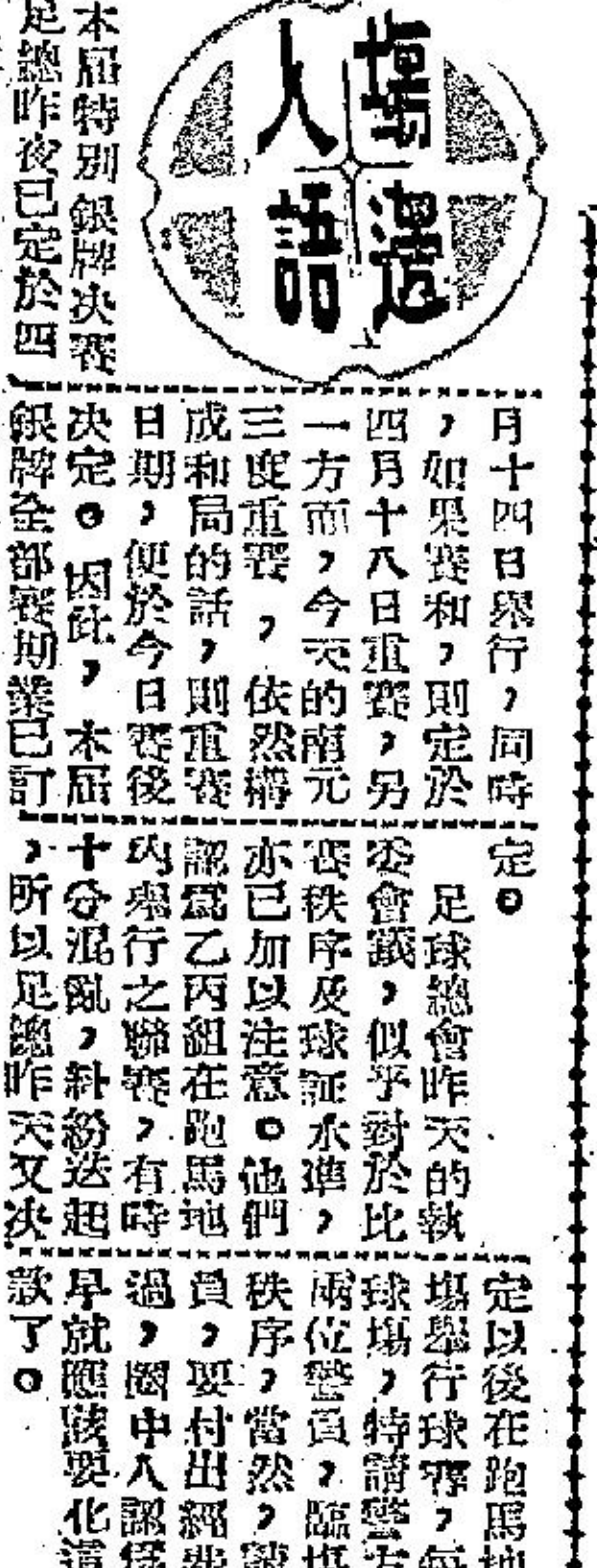 場邊
人語
本屆特別銀牌决賽
足總昨夜已定於四
月十四日舉行，同時
，如果賽和，則定於
四月十八日重賽，另
一方面，今天的南元
三度重賽，依然搆
成和局的話，則重賽
日期，便於今日賽後
决定。因此，本屆
銀牌全部賽期業已訂
定。
足球總會昨天的執
委會議，似乎對於比
賽秩序及球証水準，
亦已加以注意。他們
認爲乙丙組在跑馬地
內舉行之聯賽，有時
十分混亂，糾紛迭起
，所以足總昨天又决
定以後在跑馬地
塲舉行球賽，每
球塲，特請警方
兩位警員，臨塲
秩序，當然，
員，要付出經費
過，圈中人認爲
早就應該要化這
款了。